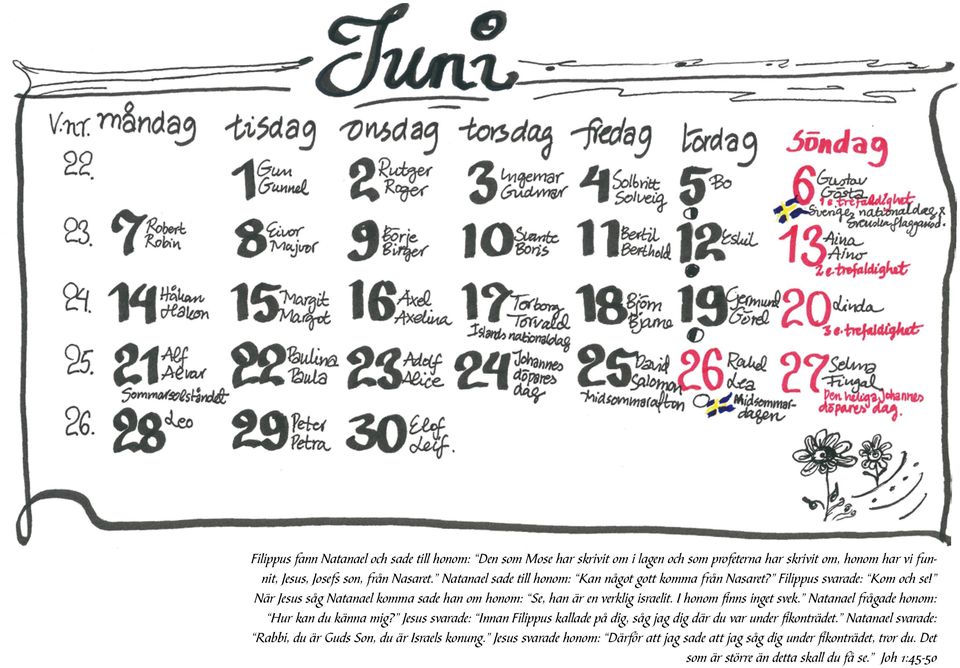 Juni
V.nr. måndag tisdag onsdag torsdag fredag lördag söndag
22. 1 Gun Gunnel 2 Rutger Roger 3 Ingemar Gudmar 4 Solbritt Solveig 5 Bo 6 Gustav Gösta
1 e. trefaldighet
Sveriges nationaldag &
Svenska flaggansd.
23. 7 Robert Robin 8 Eivor Majvor 9 Börje Birger 10 Svante Boris 11 Bertil Berthold 12 Eskil 13 Aina Aino
2 e. trefaldighet
24. 14 Håkan Hakon 15 Margit Margot 16 Axel Axelina 17 Torborg Torvald 18 Björn Bjarne 19 Germund Görel 20 Linda
Islands nationaldag
3 e. trefaldighet
25. 21 Alf Alvar 22 Paulina Paula 23 Adolf Alice 24 Johannes döpares dag 25 David Salomon 26 Rakel Lea 27 Selma Fingal
Sommarsolståndet
Midsommarafton
Midsommar-
dagen
Den helige Johannes
döpares dag.
26. 28 Leo 29 Peter Petra 30 Elof Leif.
Filippus fann Natanael och sade till honom: “Den som Mose har skrivit om i lagen och som profeterna har skrivit om, honom har vi fun-
nit, Jesus, Josefs son, från Nasaret.” Natanael sade till honom: “Kan något gott komma från Nasaret?” Filippus svarade: “Kom och se!”
När Jesus såg Natanael komma sade han om honom: “Se, han är en verklig israelit. I honom finns inget svek.” Natanael frågade honom:
“Hur kan du känna mig?” Jesus svarade: “Innan Filippus kallade på dig, såg jag dig där du var under fikonträdet.” Natanael svarade:
“Rabbi, du är Guds Son, du är Israels konung.” Jesus svarade honom: “Därför att jag sade att jag såg dig under fikonträdet, tror du. Det
som är större än detta skall du få se.” Joh 1:45-50